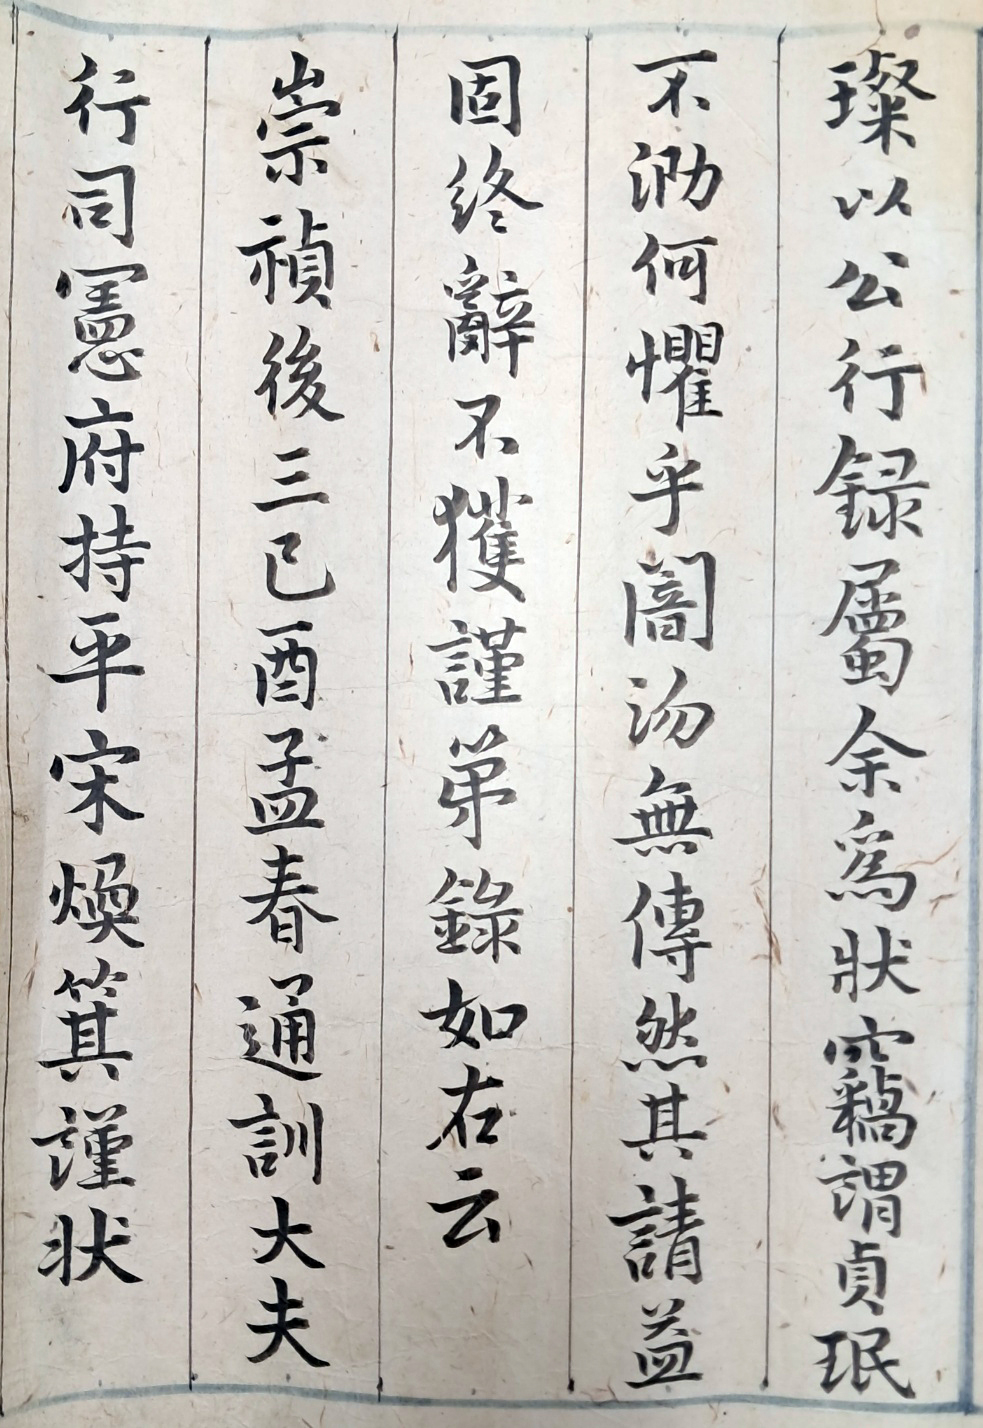 璨以公行録屬余爲狀竊謂貞珉
不泐何懼乎闇汤無傳然其請益
固終辭不獲謹弟錄如右云
崇禎後三己酉孟春通訓大夫
行司憲府持平宋煥箕謹状